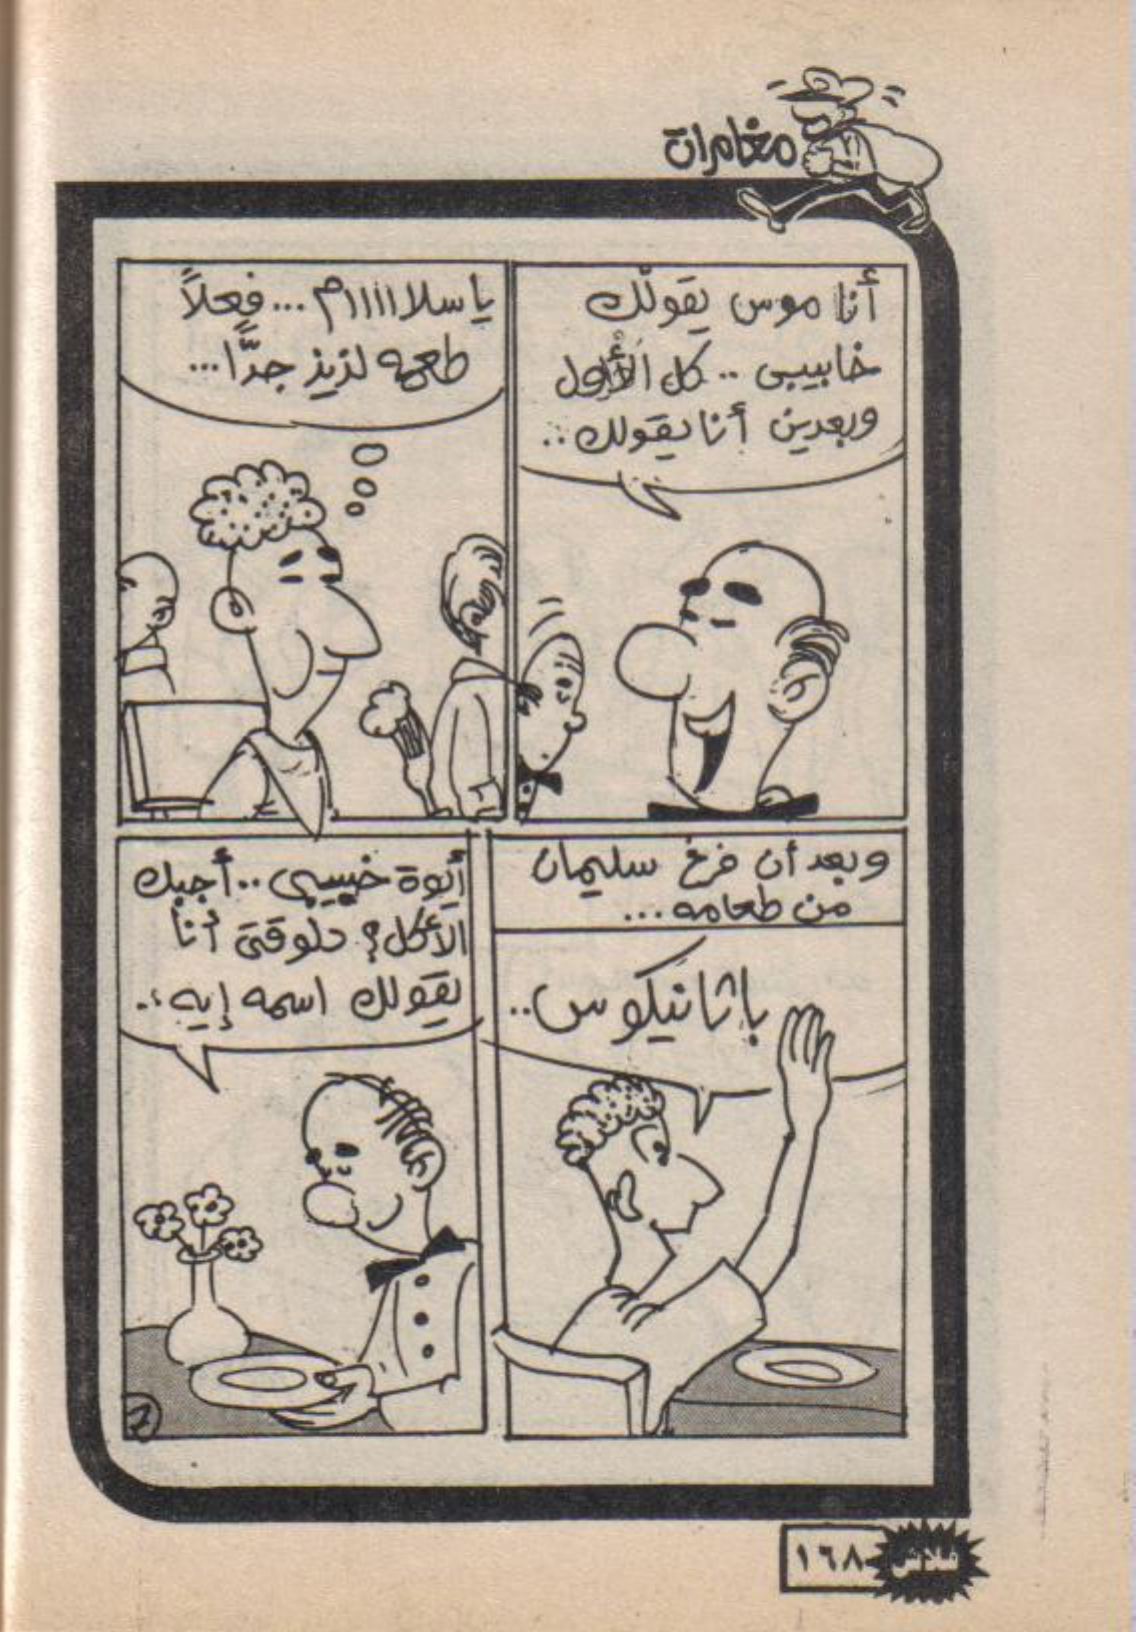 مغامرات
أنا موس يقولّك
خابيبي .. كل الأول
وبعدين أنا يقولك ..
يا سلااااام ... فعلاً
طعمه لذيذ جدًّا ...
وبعد أن فرغ سليمان
من طعامه ...
باثانيكوس ..
أيوة خبيبي .. أجبك
الأكل؟ دلوقتى أنا
يقولك اسمه إيه ..
٢
فلاش
١٦٨